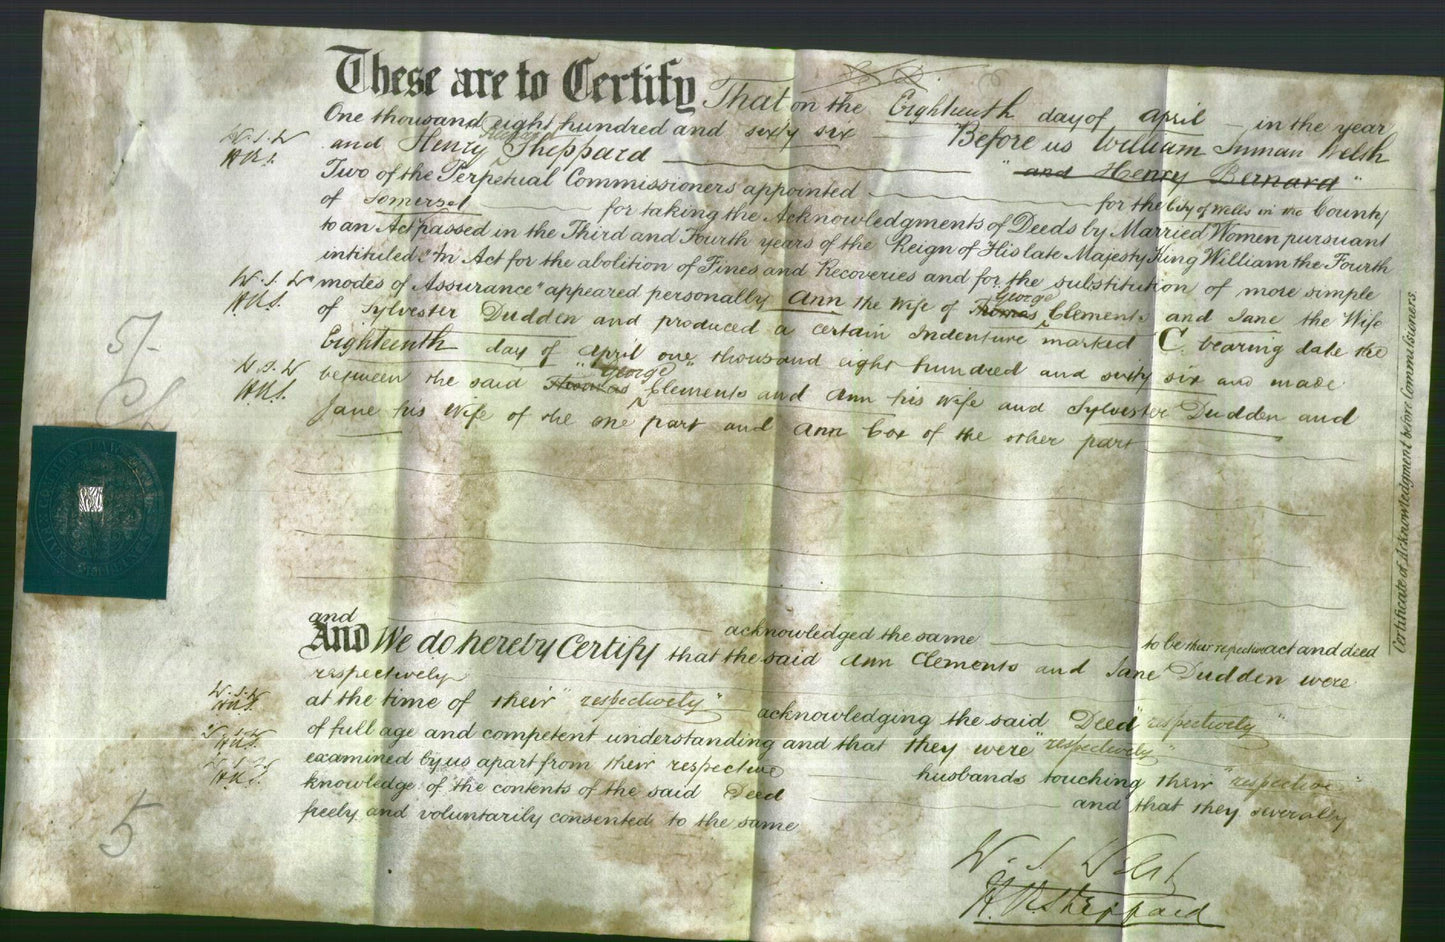 These are to Certify That on the Eighteenth day of April in the year
One thousand eight hundred and sixty six Before us William Inman Welsh
W. I. W
H.R.S. and Henry Sheppard "and Henry Bernard"
Two of the Perpetual Commissioners appointed for the City of Wells in the County
of Somerset for taking the Acknowledgments of Deeds by Married Women pursuant
to an Act passed in the Third and Fourth years of the Reign of His late Majesty King William the Fourth
intituled "An Act for the abolition of Fines and Recoveries and for the substitution of more simple
W. I. W modes of Assurance" appeared personally Ann the Wife of Thomas George Clements and Jane the Wife
H.R.S. of Sylvester Dudden and produced a certain Indenture marked C. bearing date the
Eighteenth day of April one thousand eight hundred and sixty six and made
W. I. W
H.R.S. between the said Thomas "George" Clements and Ann his Wife and Sylvester Dudden and
Jane his Wife of the one part and Ann Cox of the other part
5/-
and acknowledged the same to be their respective act and deed
And We do hereby Certify that the said Ann Clements and Jane Dudden were
respectively
W. I. W
H.R.S. at the time of their "respectively" acknowledging the said Deed "respectively"
W. I. W
H.R.S. of full age and competent understanding and that they were "respectively"
examined by us apart from their respective husbands touching their "respective"
W. I. W
H.R.S. knowledge of the contents of the said Deed and that they severally
freely and voluntarily consented to the same
5
W. I. Welsh
H. R. Sheppard
Certificate of Acknowledgment before Commissioners.